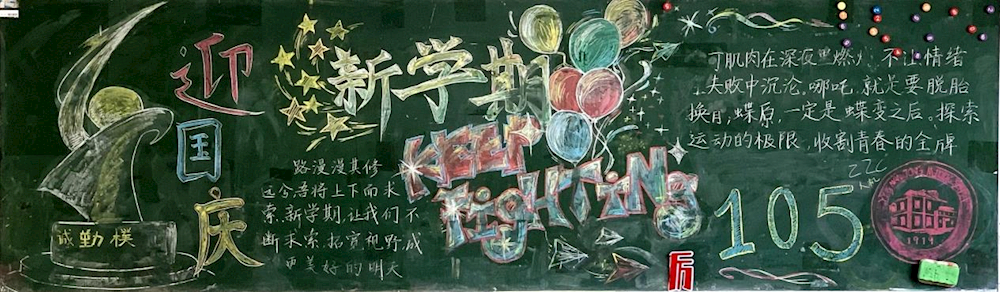 迎国庆
诚勤樸
新学期
KEEP
FIGHTING
路漫漫其修
远兮吾将上下而求
索,新学期,让我们不
断求索,拓宽视野,成
更美好的明天
肌肉在深夜里燃 不让情绪
失败中沉沦,哪吒,就是要脱胎
换自,蝶后,一定是蝶变之后。探索
运动的极限,收割青春的金牌
ZZC
105
1914